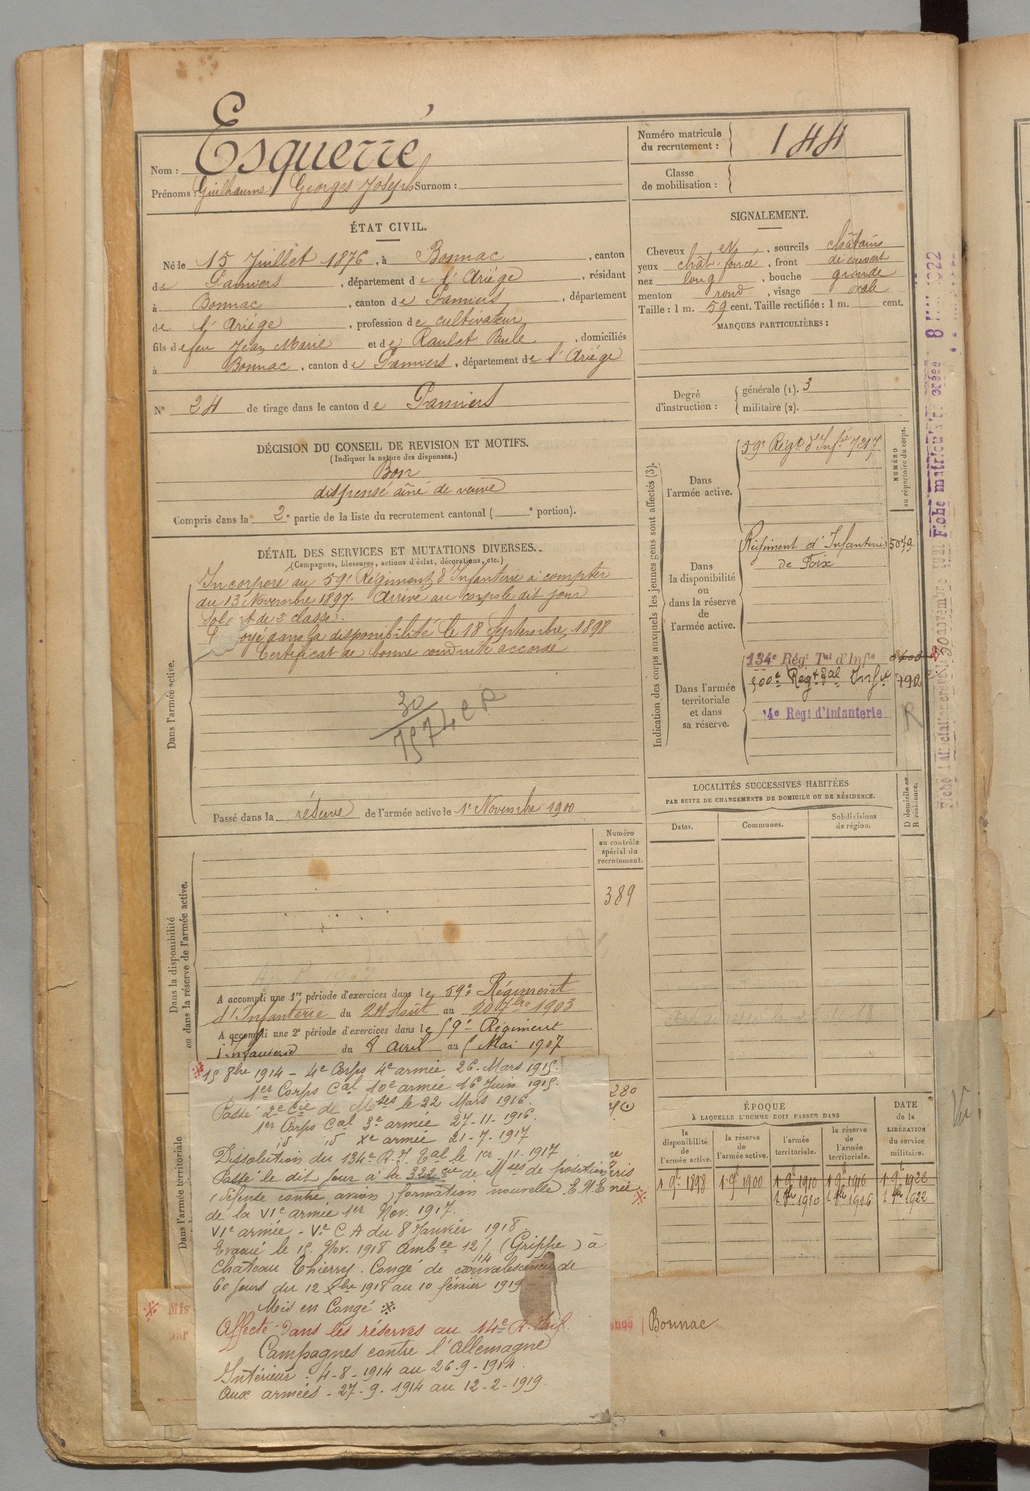 Nom : Esquerré
Prénoms : Guilhaume Georges Joseph Surnom :
Numéro matricule du recrutement : 144
Classe de mobilisation :
ÉTAT CIVIL.
Né le 15 Juillet 1876, à Bonnac, canton
de Pamiers, département de l'Ariège, résidant
à Bonnac, canton de Pamiers, département
de l'Ariège, profession de cultivateur
fils de feu Jean Marie et de Raulet Paule, domiciliés
à Bonnac, canton de Pamiers, département de l'Ariège
N° 24 de tirage dans le canton de Pamiers
SIGNALEMENT.
Cheveux et, sourcils châtains
yeux chât. foncé, front découvert
nez long, bouche grande
menton rond, visage ovale
Taille : 1 m. 59 cent. Taille rectifiée : 1 m. cent.
MARQUES PARTICULIÈRES :
Degré d'instruction : générale (1). 3
militaire (2).
DÉCISION DU CONSEIL DE REVISION ET MOTIFS.
(Indiquer la nature des dispenses.)
Bon
dispensé aîné de veuve
Compris dans la 2e partie de la liste du recrutement cantonal ( e portion).
DÉTAIL DES SERVICES ET MUTATIONS DIVERSES.
(Campagnes, blessures, actions d'éclat, décorations, etc.)
Dans l'armée active.
Incorporé au 59e Régiment d'Infanterie à compter
du 13 Novembre 1897. Arrivé au corps le dit jour
soldat de 2e classe.
dans la disponibilité le 18 Septembre 1898
Certificat de bonne conduite accordé
30
Passé dans la réserve de l'armée active le 1r Novembre 1900
Indication des corps auxquels les jeunes gens sont affectés (3).
NUMÉRO au répertoire du corps.
Dans l'armée active.
59e Régt d'Infie 7217
Dans la disponibilité ou dans la réserve de l'armée active.
Régiment d'Infanterie 5079
de Foix
Dans l'armée territoriale et dans sa réserve.
134e Régt Tal d'Infie
500e Regt Tal Infie 792
14e Régt d'Infanterie R
LOCALITÉS SUCCESSIVES HABITÉES
PAR SUITE DE CHANGEMENTS DE DOMICILE OU DE RÉSIDENCE.
Dates. Communes. Subdivisions de région. D domicile ou R résidence.
Numéro au contrôle spécial du recrutement.
389
Dans la disponibilité ou dans la réserve de l'armée active.
A accompli une 1re période d'exercices dans le 59e Régiment
d'Infanterie du 24 Août au 20 7bre 1903
A accompli une 2e période d'exercices dans le 59e Régiment
Infanterie du 8 Avril au Mai 1907
Dans l'armée territoriale
15 8bre 1914 - 4e Corps 4e armée 26. Mars 1915.
1er Corps Cal 10e armée 16 Juin 1915.
Passé 2e Cie de Mses le 22 Mars 1916.
1er Corps Cal 3e armée 27-11-1916.
id id Xe armée 21-7-1917
Dissolution du 134e R.I. Tal le 1er-11-1917
Passé le dit jour à la 322 Cie de Mses de position
(défense contre avion) formation nouvelle
de la VIe armée 1er Nov. 1917.
VIe armée - Ve C A du 8 Janvier 1918
Evacué le 15 Nov. 1918 Ambce 12/14 (Grippe) à
Chateau Thierry. Congé de convalescence de
60 jours du 12 Xbre 1918 au 10 février 1919
Mis en Congé
Affecté dans les réserves au 14e R. Inf.
Campagnes contre l'Allemagne
Intérieur : 4-8-1914 au 26-9-1914
Aux armées - 27-9-1914 au 12-2-1919
280
Bonnac
ÉPOQUE
À LAQUELLE L'HOMME DOIT PASSER DANS
la disponibilité de l'armée active. la réserve de l'armée active. l'armée territoriale. la réserve de l'armée territoriale.
DATE de la LIBÉRATION du service militaire.